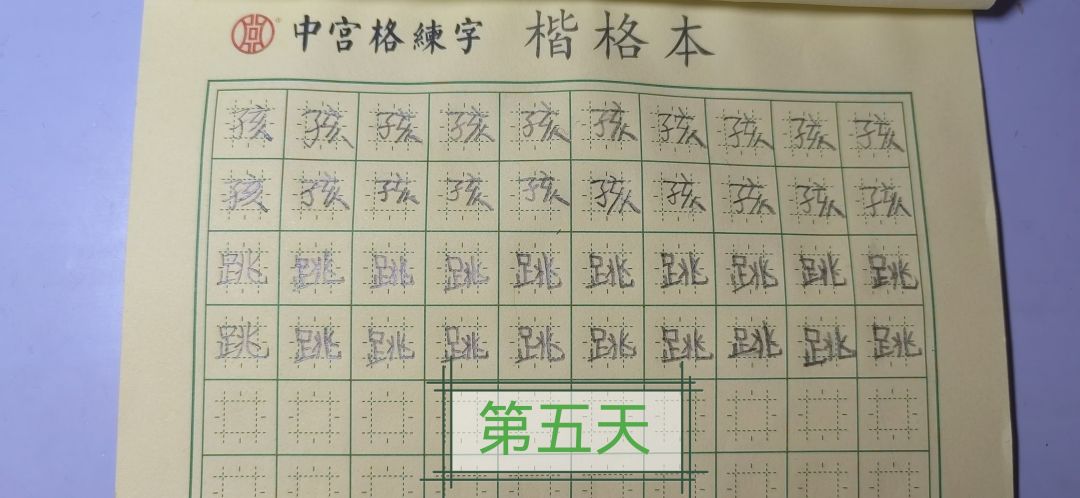 中宫格練字 楷格本
孩孩孩孩孩孩孩孩孩孩
孩孩孩孩孩孩孩孩孩孩
跳跳跳跳跳跳跳跳跳跳
跳跳跳跳跳跳跳跳跳跳
第五天